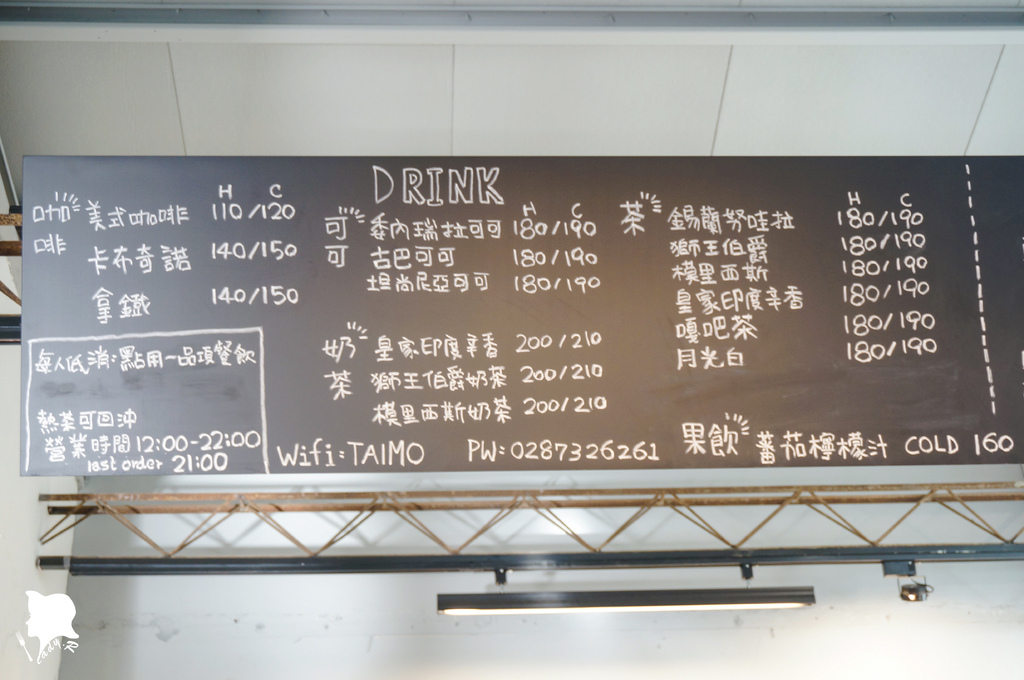 DRINK
咖啡
H C
美式咖啡 110/120
卡布奇諾 140/150
拿鐵 140/150
每人低消:點用一品項餐飲
熱茶可回沖
營業時間12:00-22:00
last order 21:00
可可
H C
委內瑞拉可可 180/190
古巴可可 180/190
坦尚尼亞可可 180/190
奶茶
皇家印度辛香 200/210
獅王伯爵奶茶 200/210
模里西斯奶茶 200/210
Wifi:TAIMO PW:0287326261
茶
H C
錫蘭努哇拉 180/190
獅王伯爵 180/190
模里西斯 180/190
皇家印度辛香 180/190
嘎吧茶 180/190
月光白 180/190
果飲
蕃茄檸檬汁 COLD 160
Lady.R